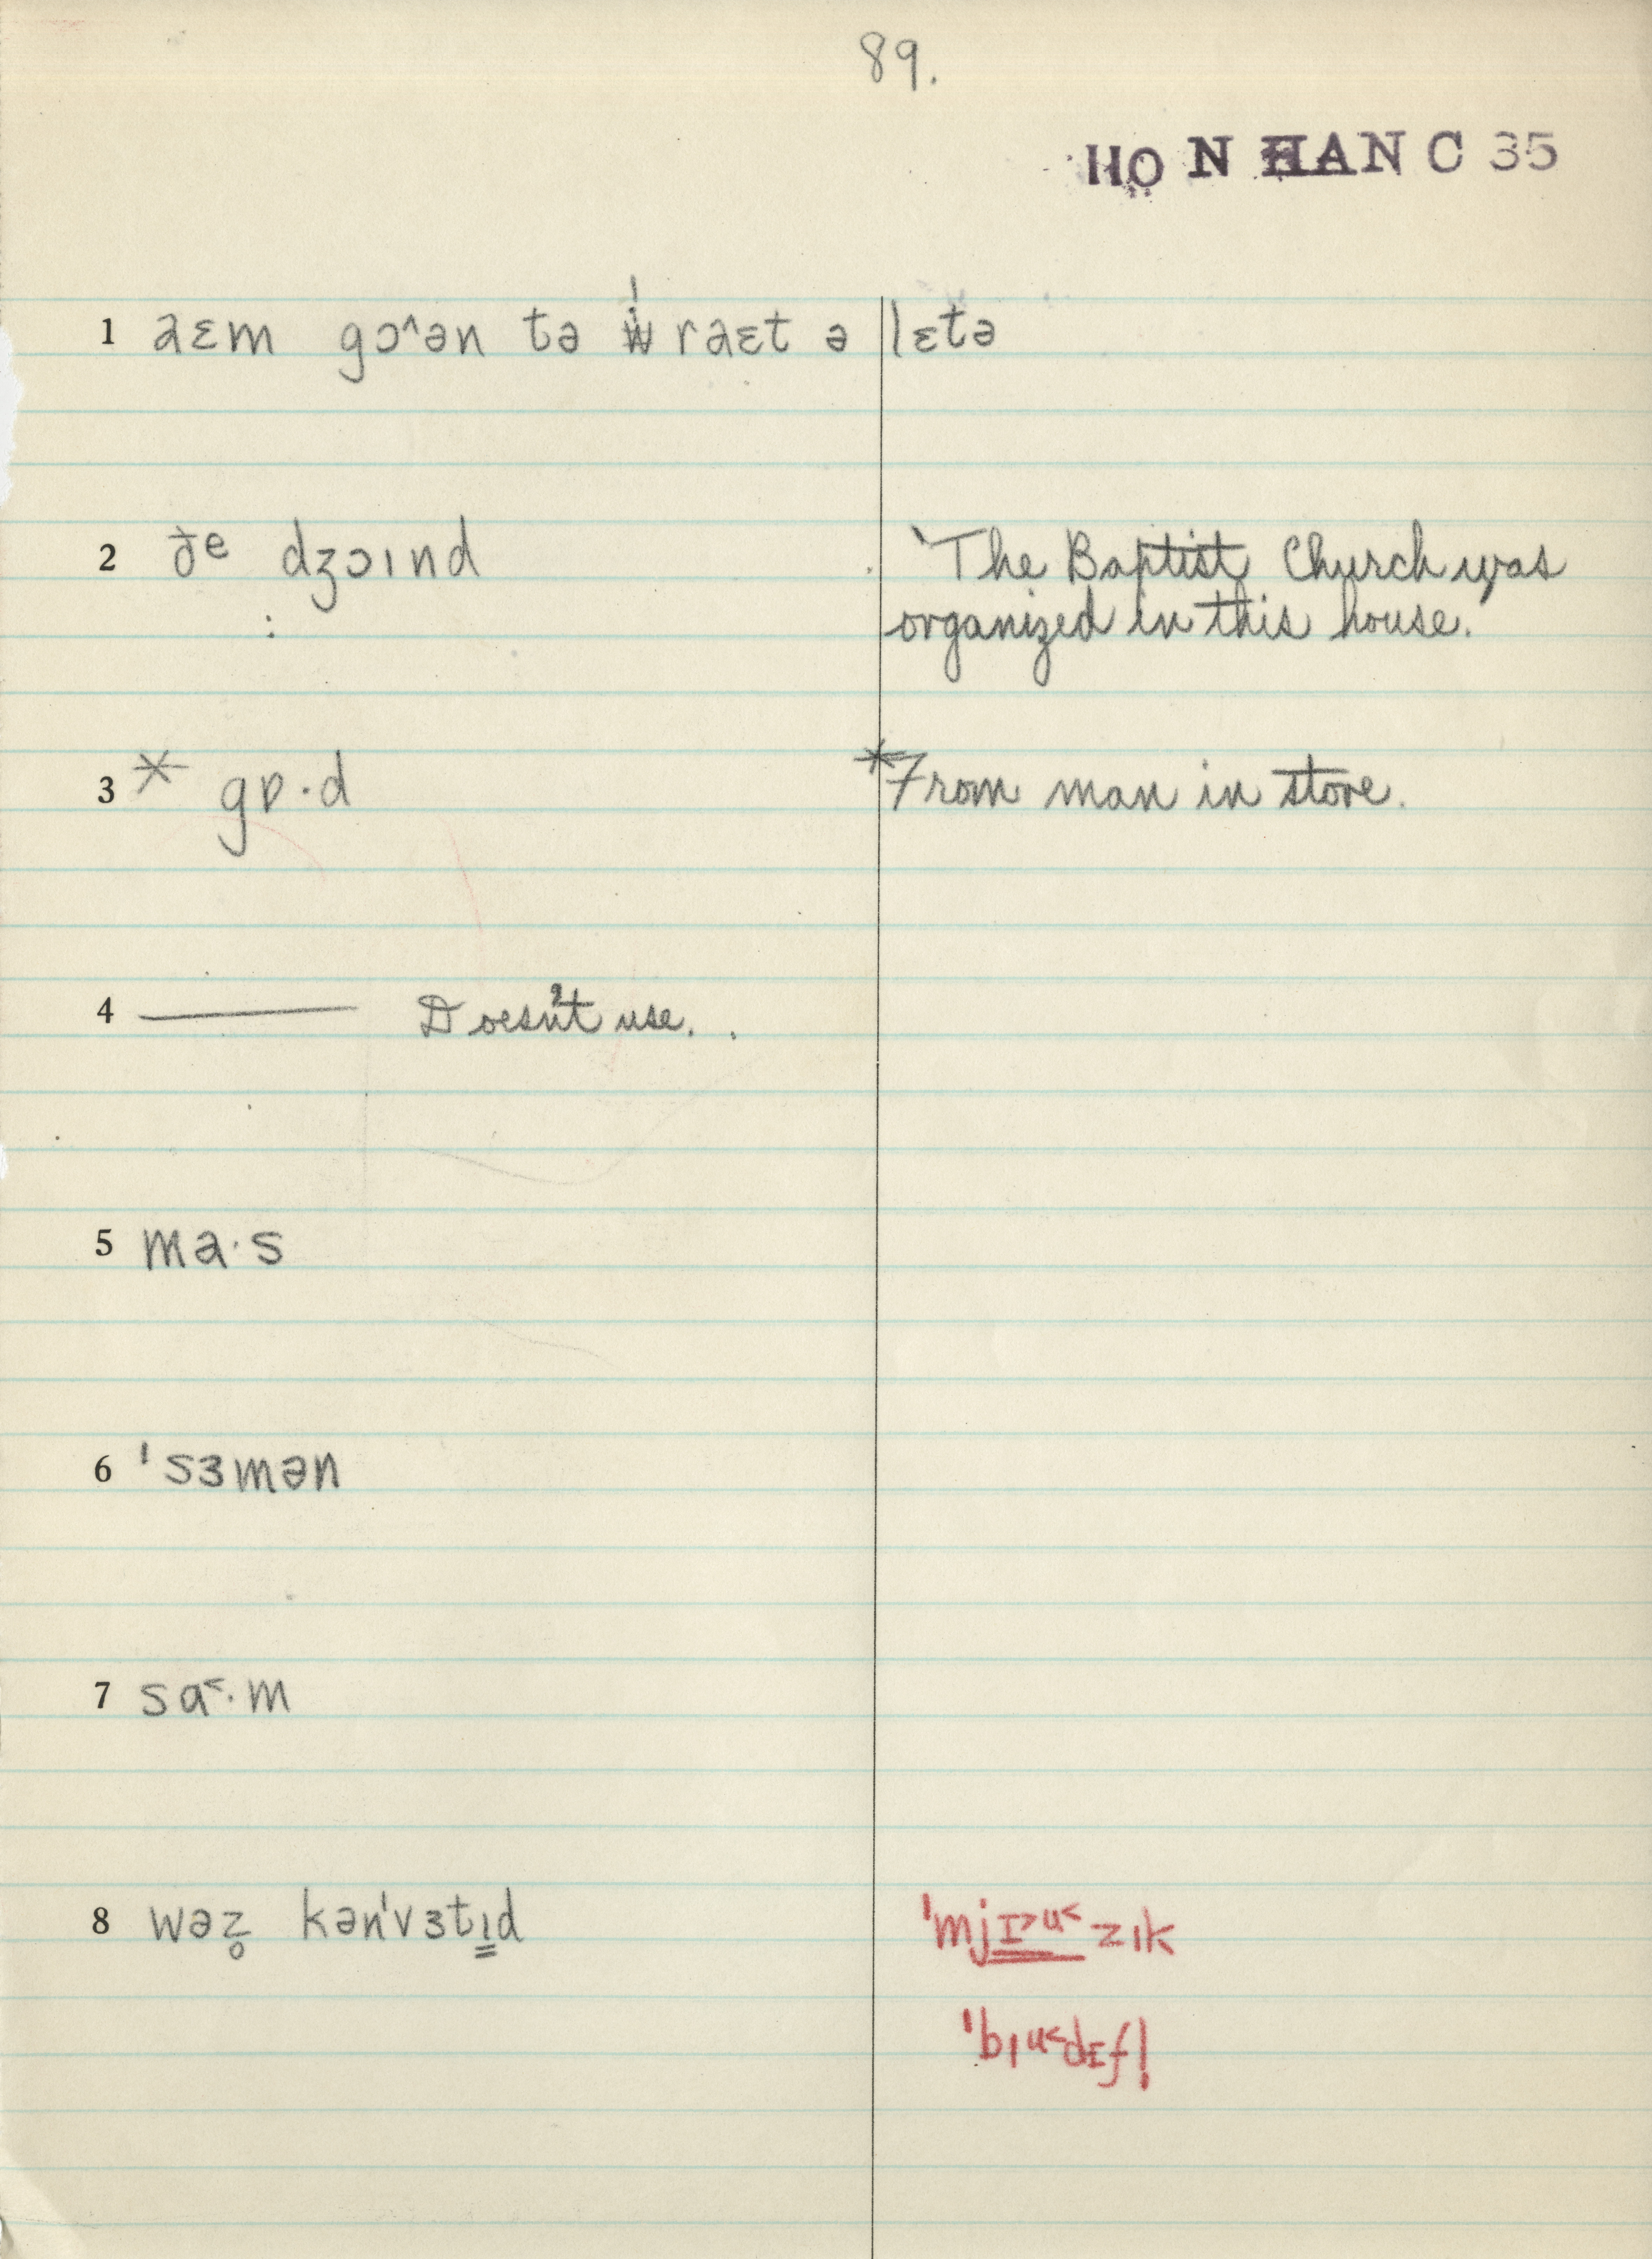 89.
HO N HAN C 35
1 aɛm gɔ^ən tə raɛt ə lɛtə
2 ðe dʒɔɪnd The Baptist Church was
: organized in this house.
3 * gɒ·d *From man in store.
4 —— Doesn't use.
5 ma·s
6 'sɜmən
7 sɑ˂·m
8 wəz̥ kən'vɜtɪ̳d 'mjɪ˃u˂zɪk
'bɪu˂dɪfl̩